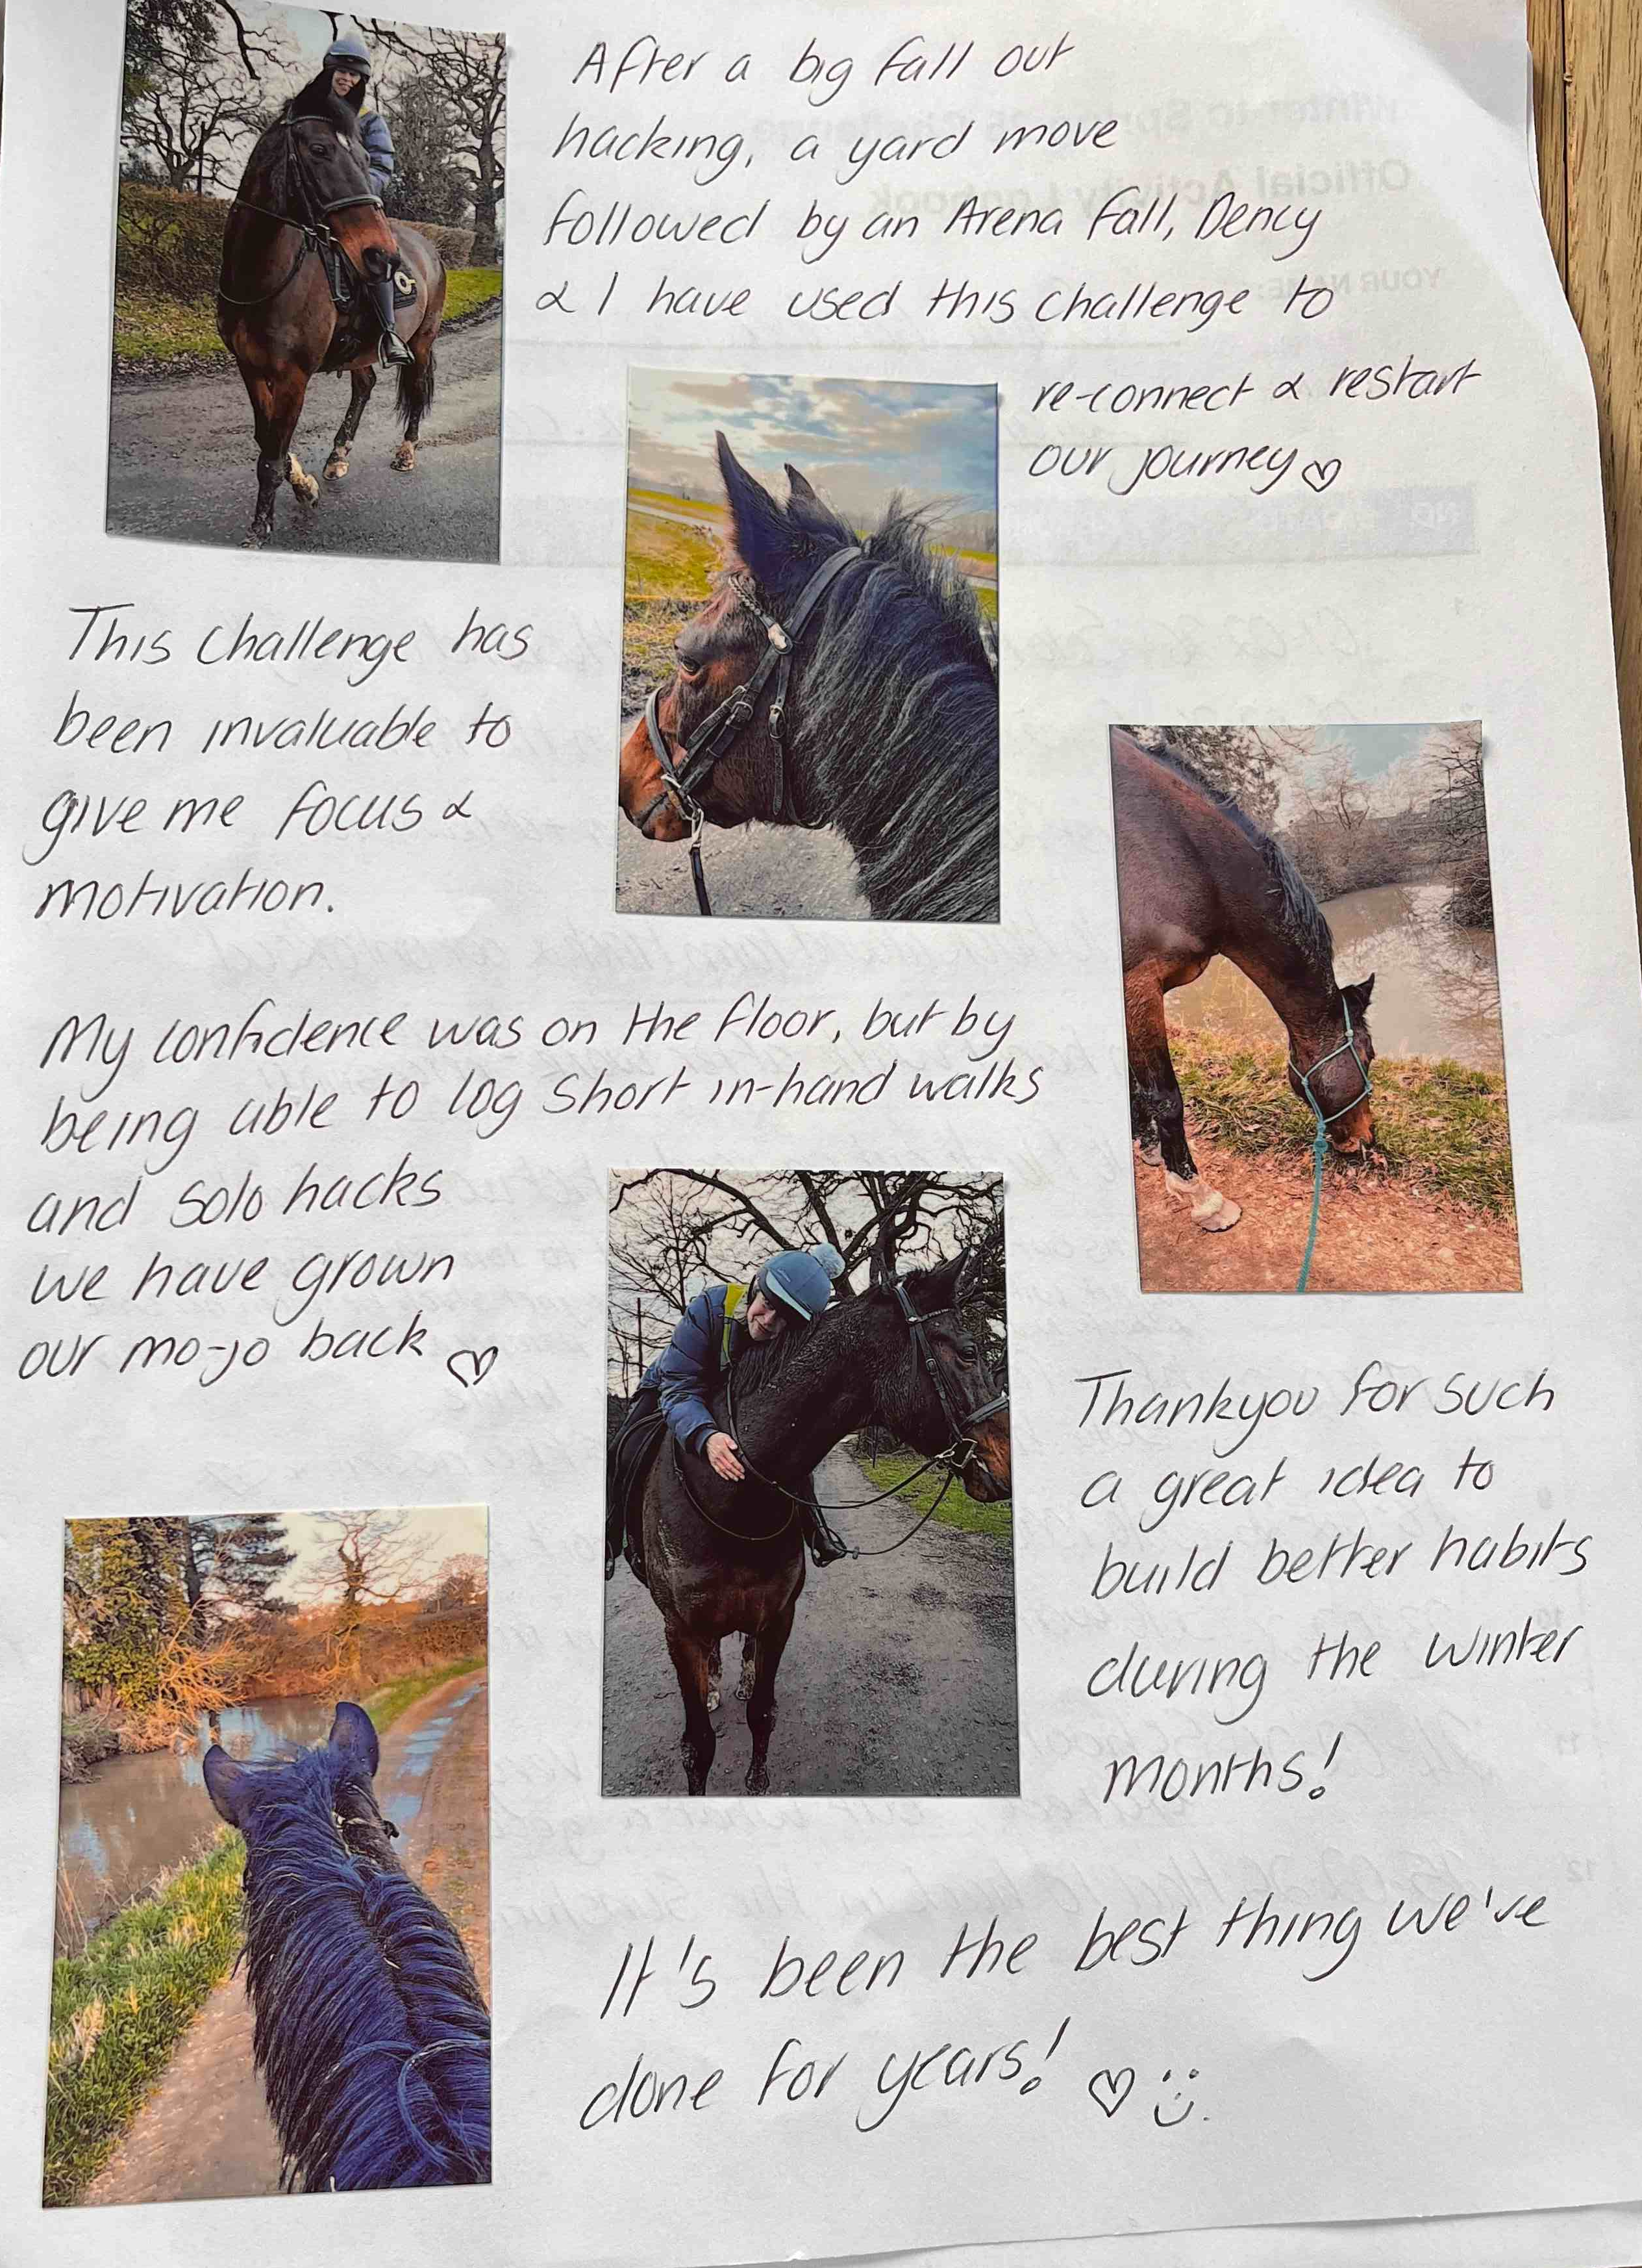 After a big fall out
hacking, a yard move
followed by an Arena fall, Dency
& I have used this challenge to
re-connect & restart
our journey ♡
This challenge has
been invaluable to
give me focus &
motivation.
My confidence was on the floor, but by
being able to log short in-hand walks
and solo hacks
we have grown
our mo-jo back ♡
Thankyou for such
a great idea to
build better habits
during the winter
months!
It's been the best thing we've
done for years! ♡ :)
Official Activity Logbook
YOUR NAME: